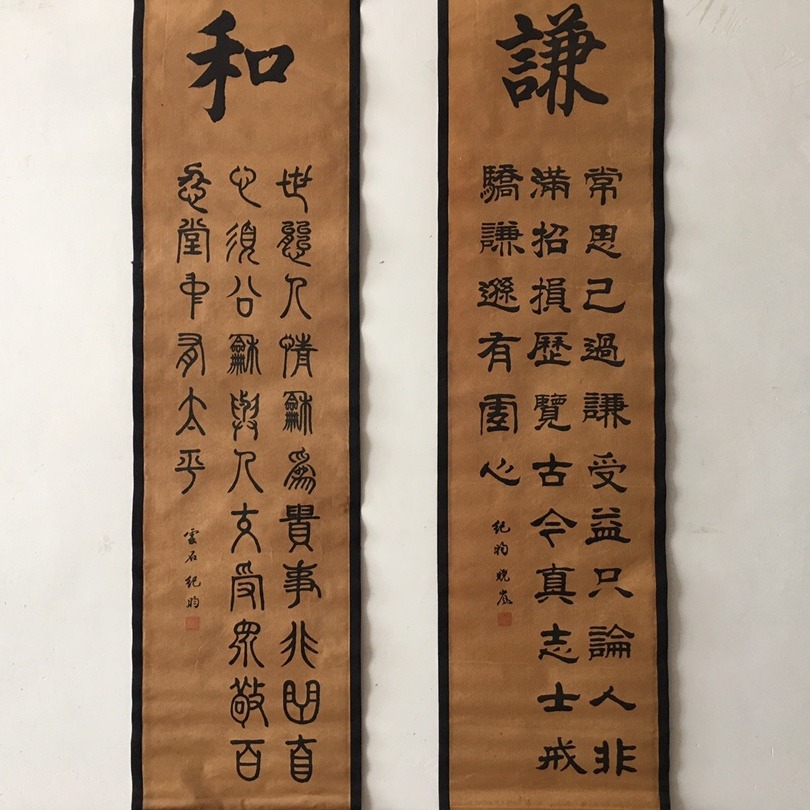 謙
常思己過謙受益只論人非
滿招損歷覽古今真志士戒
驕謙遜有虛心
紀昀曉嵐
和
世態人情龢為貴事非問自
心須公龢與人交受眾敬百
忍堂中有太平
雲石紀昀